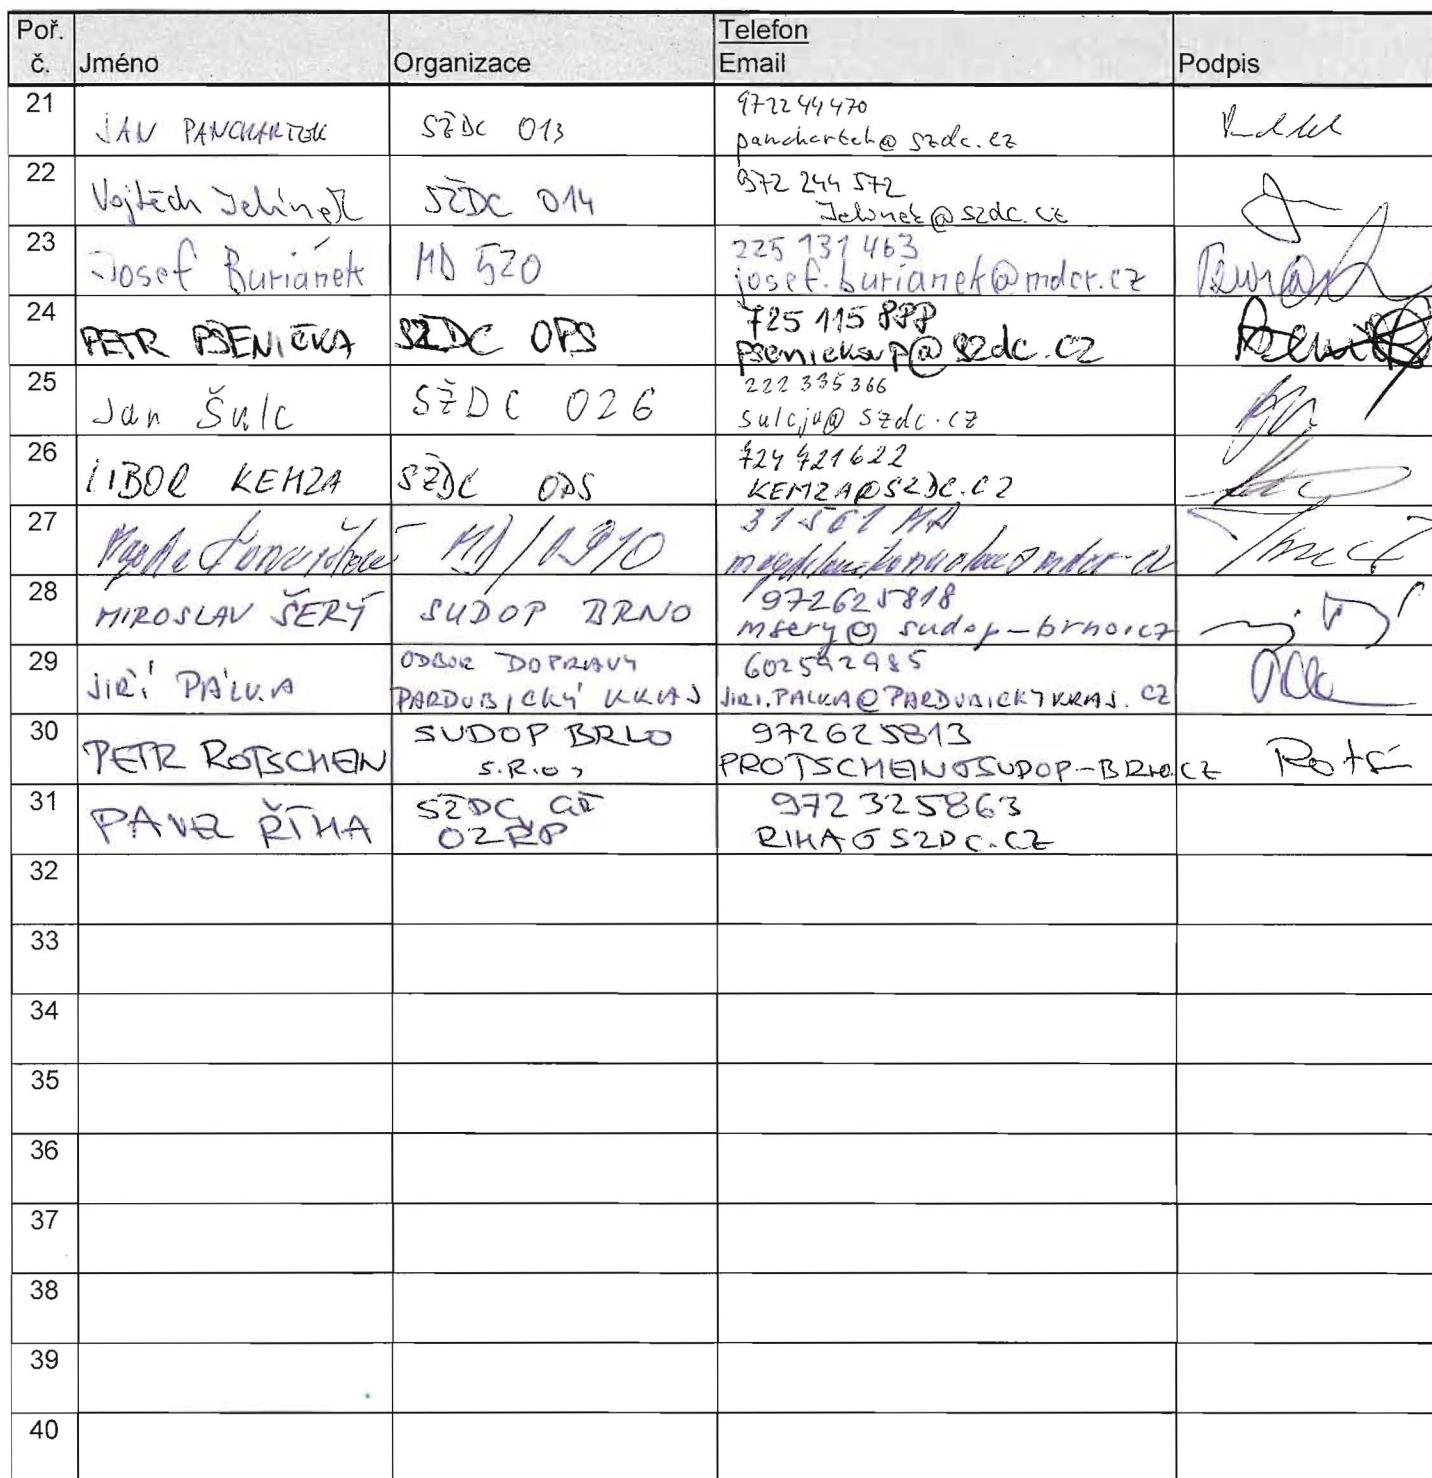 Poř. č. Jméno Organizace Telefon Email Podpis
21 JAN PANCHARTEK SŽDC 013 972244470
panchartek@szdc.cz
22 Vojtěch Jelínek SŽDC 014 972 244 572
Jelinek@szdc.cz
23 Josef Buriánek MD 520 225 131 463
josef.burianek@mdcr.cz
24 PETR PŠENIČKA SŽDC OPS 725 115
psenickap@szdc.cz
25 Jan Šulc SŽDC 026 222 335 366
sulcju@szdc.cz
26 LIBOR KEMZA SŽDC OPS 724 921622
KEMZA@SZDC.CZ
27 MD/ 31561
28 MIROSLAV ŠERÝ SUDOP BRNO 972625818
msery@sudop-brno.cz
29 JIŘÍ PÁLKA ODBOR DOPRAVY 602592985
PARDUBICKÝ KRAJ JIRI.PALKA@PARDUBICKYKRAJ.CZ
30 PETR ROTSCHEIN SUDOP BRNO 972625813
S.R.O, PROTSCHEIN@SUDOP-BRNO.CZ
31 PAVEL ŘÍHA SŽDC, GŘ 972325863
OZŘP RIHA@SZDC.CZ
32
33
34
35
36
37
38
39
40